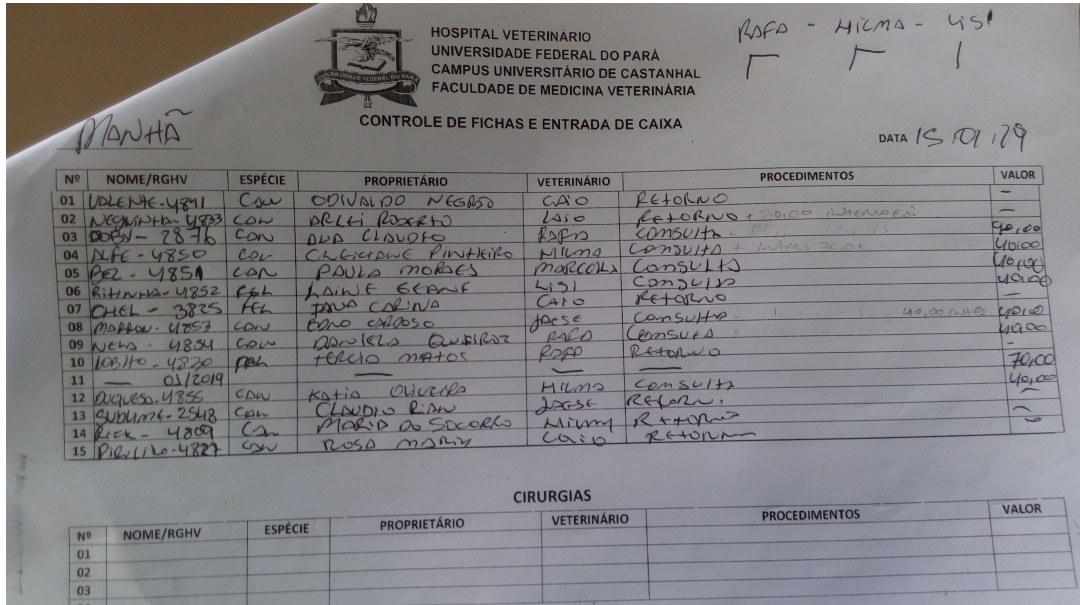 RAFA - HILMA - LISI
HOSPITAL VETERINÁRIO
UNIVERSIDADE FEDERAL DO PARÁ
CAMPUS UNIVERSITÁRIO DE CASTANHAL
FACULDADE DE MEDICINA VETERINÁRIA
CONTROLE DE FICHAS E ENTRADA DE CAIXA
MANHÃ
DATA 15
Nº NOME/RGHV ESPÉCIE PROPRIETÁRIO VETERINÁRIO PROCEDIMENTOS VALOR
01 VALENTE-4841 CAN ODIVALDO NEGRSO CAIO RETORNO -
02 NEGUINHA-4833 CAN ROBERTO CAIO RETORNO + 20,00 -
03 2876 CAN ANA CLAUDIO RAFA CONSULTA 40,00
04 ALFE - 4850 CAN PINHEIRO HILMA CONSULTA + 40,00
05 BEL - 4851 CAN PAULA MORAES MARCELLA CONSULTA 40,00
06 RITINHA-4852 FEL LAINE LISI CONSULTA 40,00
07 CHEL - 3825 FEL CARINA CAIO RETORNO -
08 4853 CAN CARDOSO JAESE CONSULTA 40,00 40,00
09 4854 CAN DANIELA QUEIROZ RAFA CONSULTA 40,00
10 4830 FEL TERCIO MATOS RAFA RETORNO -
11 — 01/2019 — — — 70,00
12 DUQUESA-4855 CAN KATIA OLIVEIRA HILMA CONSULTA 40,00
13 SUBLIME-2548 CAN CLAUDIO RIAN JAESE RETORNO -
14 RICK - 4809 CAN MARIA DO SOCORRO HILMA RETORNO -
15 PIRULITO-4827 CAN ROSA MARIA CAIO RETORNO -
CIRURGIAS
Nº NOME/RGHV ESPÉCIE PROPRIETÁRIO VETERINÁRIO PROCEDIMENTOS VALOR
01
02
03